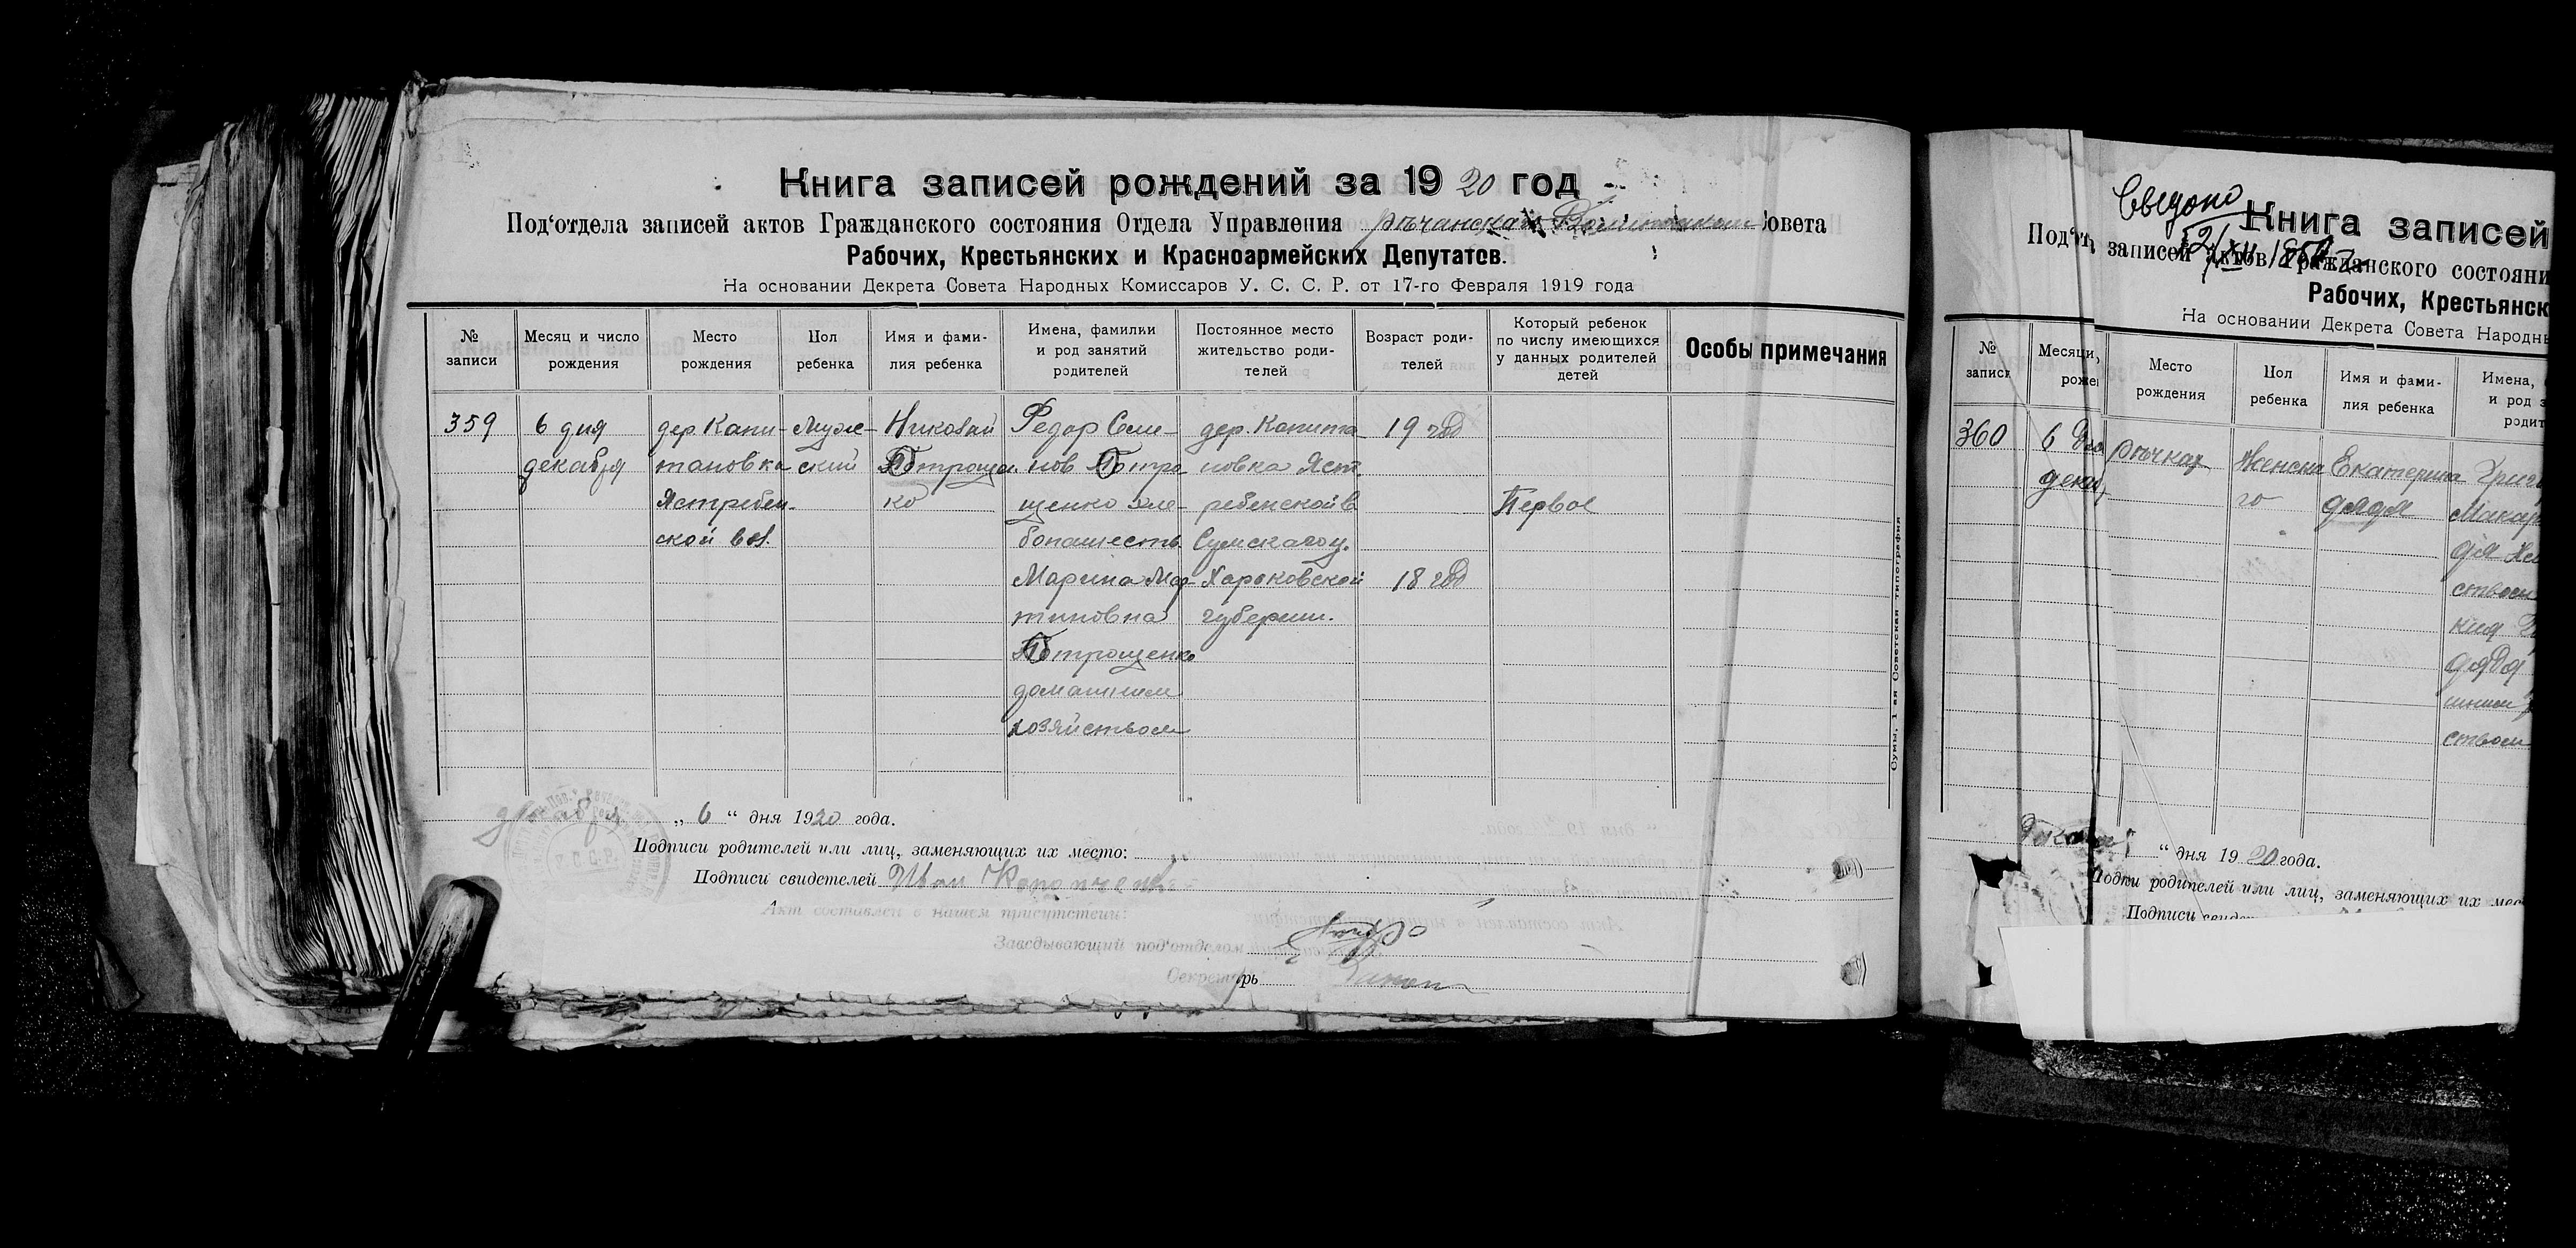 Книга записей рождений за 1920 год
Под‘отдела записей актов Гражданского состояния Отдела Управления Совета
Рабочих, Крестьянских и Красноармейских Депутатов.
На основании Декрета Совета Народных Комиссаров У. С. С. Р. от 17-го Февраля 1919 года
№ записи
Месяц и число рождения
Место рождения
Пол ребенка
Имя и фами-
лия ребенка
Имена, фамилии
и род занятий
родителей
Постоянное место
жительство роди-
телей
Возраст роди-
телей
Который ребенок
по числу имеющихся
у данных родителей
детей
Особы примечания
359
6 дня
декабря
дер. Капи-
тановка
Ястребен-
ской вол.
Муже-
ский
Николай
Потрощен
ко
Федор Сем-
нов Потро-
щенко хле-
бопашеств.
Марина Мар-
тиновна
Потрощенко
домашнем
хозяйством
дер. Капита-
новка Яст
ребенской в.
Сумскаго у.
Харьковской
губернии.
19 год
18 год
Первое
Сумы, 1-ая Советская типография
декабря „ 6 “ дня 1920 года.
Подписи родителей или лиц, заменяющих их место:
Подписи свидетелей Иван
Акт составлен в нашем присутствии:
Заведывающий под‘отделом
Секретарь
Сведено
Книга записей
записей актов Гражданского состояни
Рабочих, Крестьянск
На основании Декрета Совета Народн
№
записи
Место
рождения
Пол
ребенка
Имя и фами-
лия ребенка
Имена,
и род з
родит
360
6
Речках
Женска
го
Екатерина
Дядя
“ дня 1920 года.
родителей или лиц, заменяющих их мес
Подписи